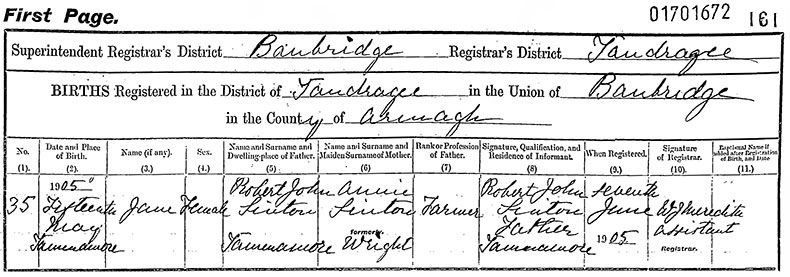 First Page. 01701672 161
Superintendent Registrar's District Banbridge Registrar's District Tandragee
BIRTHS Registered in the District of Tandragee in the Union of Banbridge
in the County of Armagh
No. (1).
Date and Place of Birth. (2).
Name (if any). (3.)
Sex. (4.)
Name and Surname and Dwelling-place of Father. (5)
Name and Surname and Maiden Surname of Mother. (6)
Rank or Profession of Father. (7)
Signature, Qualification, and Residence of Informant. (8)
When Registered. (9.)
Signature of Registrar. (10.)
Baptismal Name if added after Registration of Birth, and Date (11.)
35
1905
Fifteenth
May
Tamnamore
Jane
Female
Robert John
Sinton
Tamnamore
Annie
Sinton
formerly
Wright
Farmer
Robert John
Sinton
Father
Tamnamore
Seventh
June
1905
W J Meredith
Assistant
Registrar.